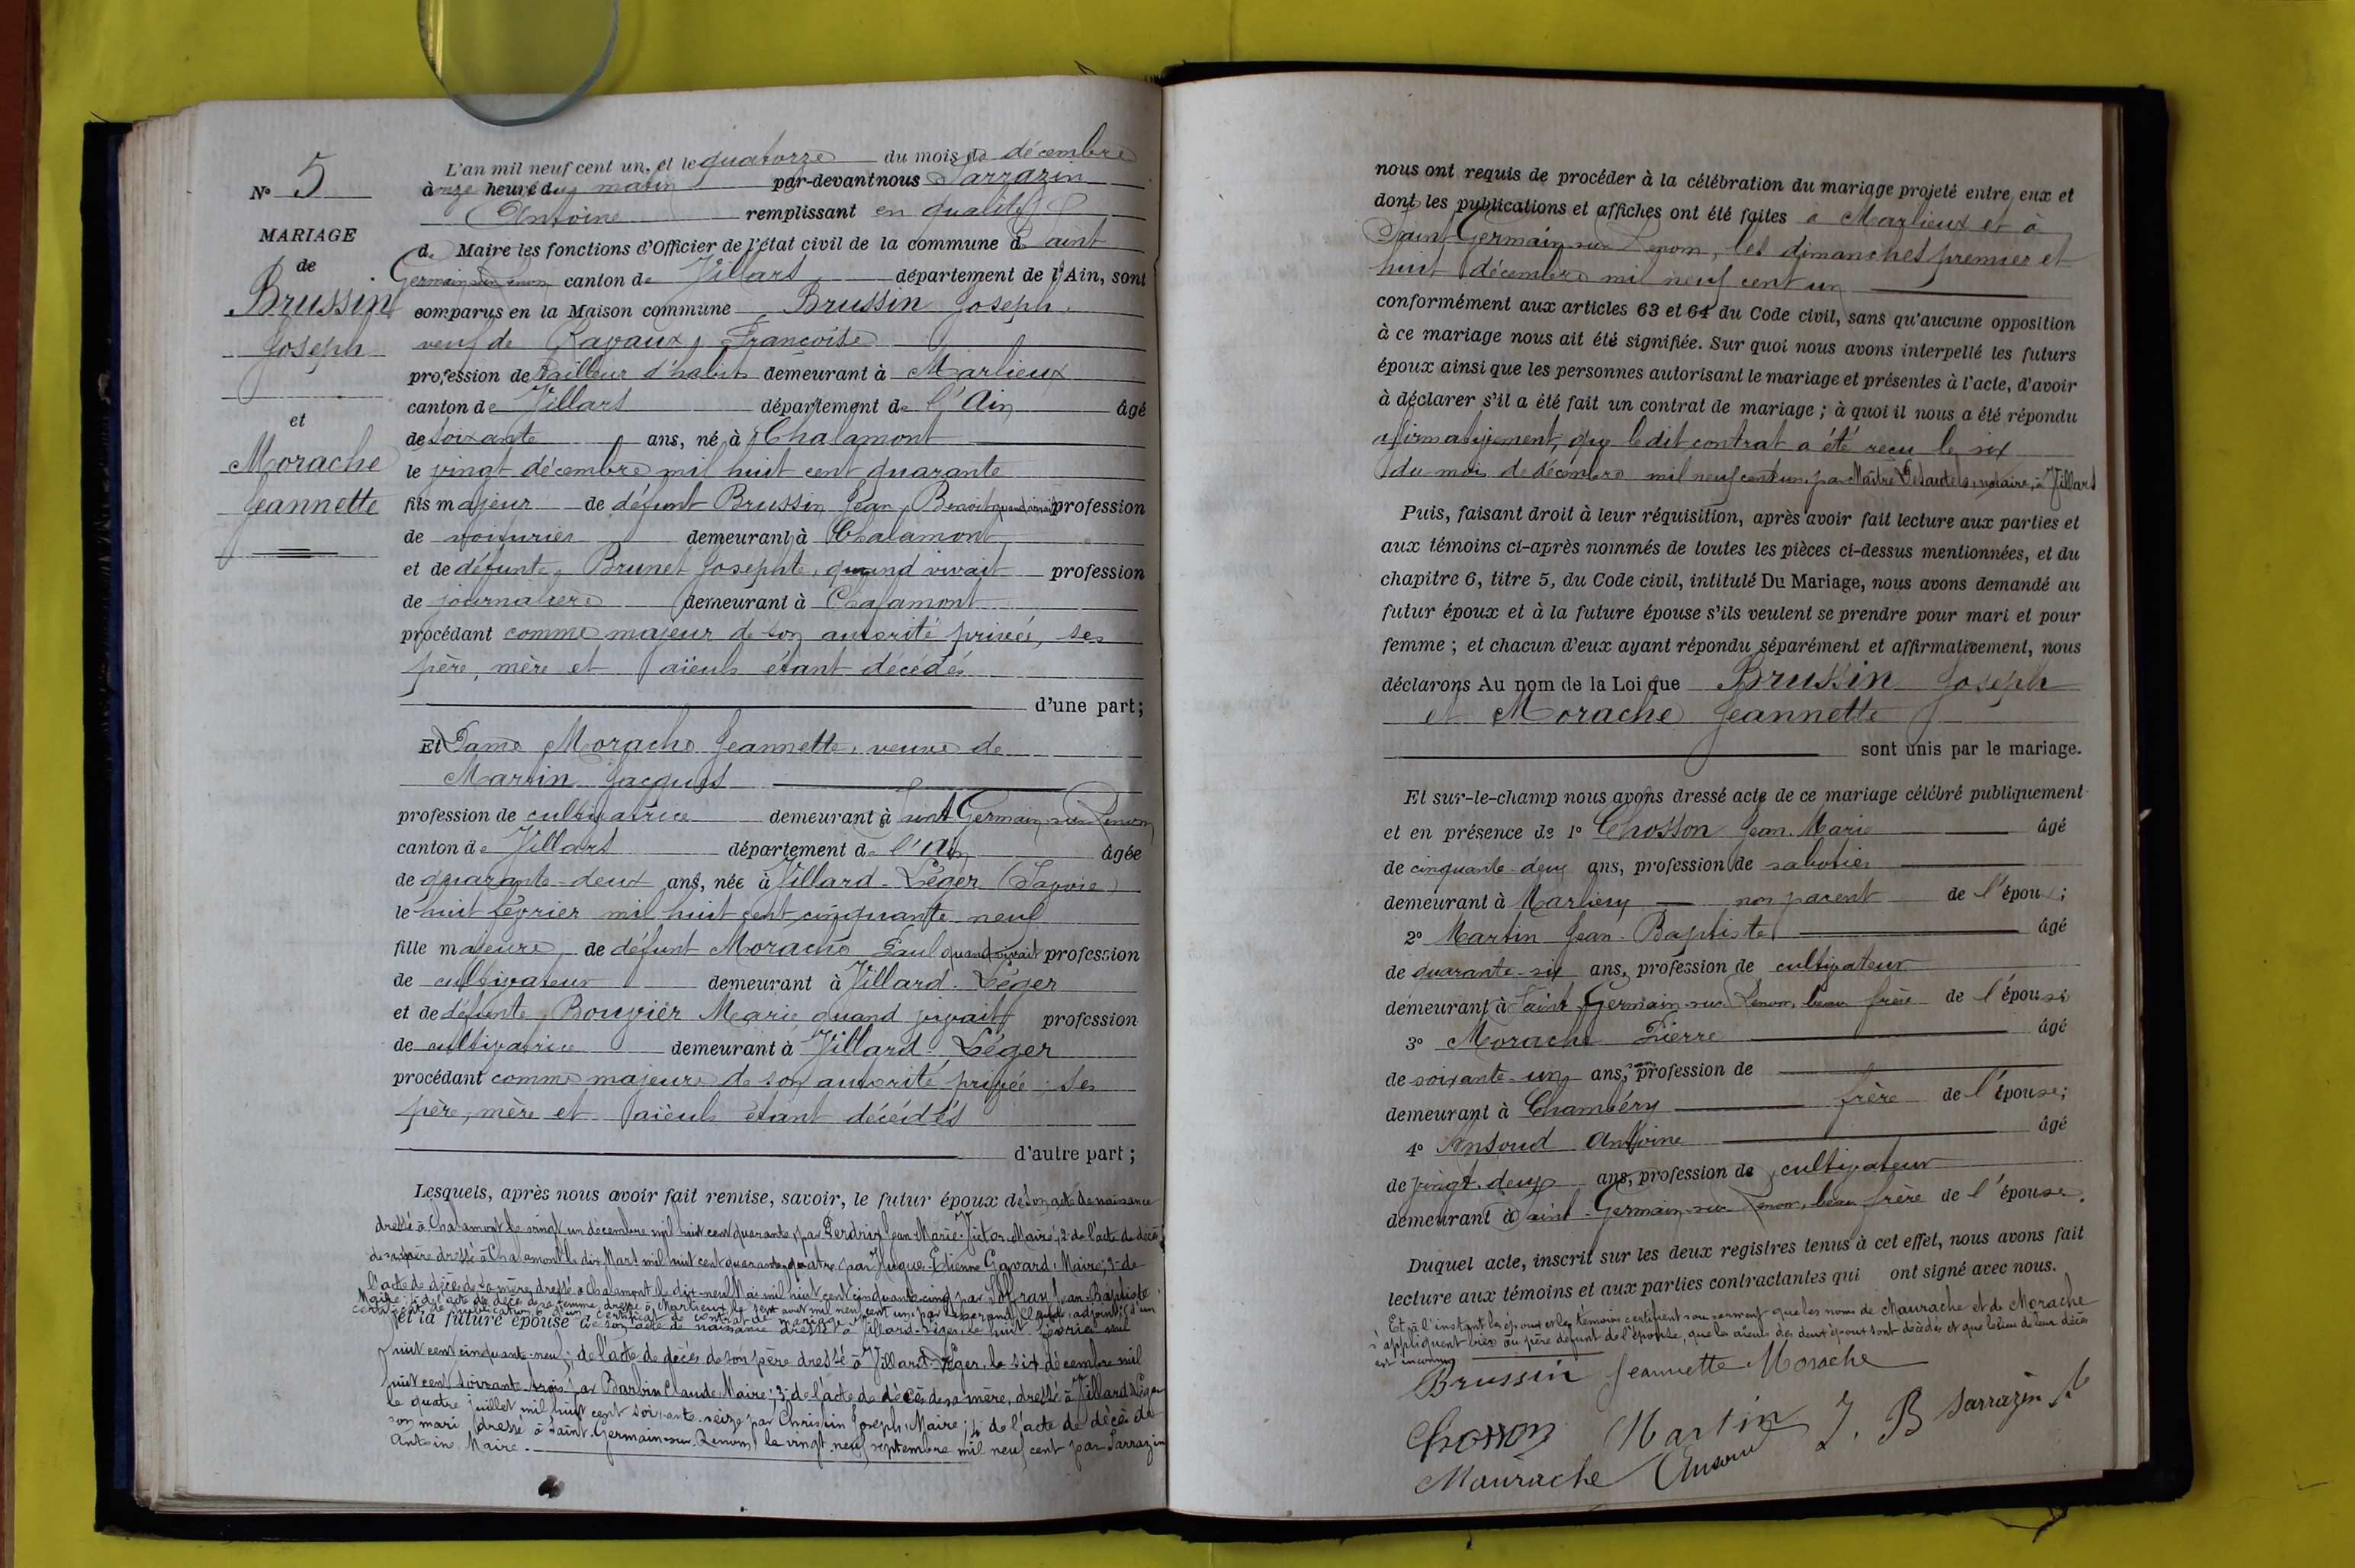 N° 5
MARIAGE
de
Brussin
Joseph
et
Morache
Jeannette
L'an mil neuf cent un, et le quatorze du mois de décembre
à onze heure du matin par-devant nous Sarrazin
Antoine remplissant en qualité
de Maire les fonctions d'Officier de l'état civil de la commune de Saint
Germain sur Renom canton de Villars département de l'Ain, sont
comparus en la Maison commune Brussin Joseph,
veuf de Ravaux, Françoise
profession de tailleur d'habits demeurant à Marlieux
canton de Villars département de l'Ain âgé
de soixante ans, né à Chalamont
le vingt décembre mil huit cent quarante
fils majeur de défunt Brussin Jean, Benoit quand vivait profession
de voiturier demeurant à Chalamont
et de défunte, Brunet Josephte, quand vivait profession
de journalière demeurant à Chalamont
procédant comme majeur de son autorité privée, ses
père, mère et aïeuls étant décédés
d'une part;
Et Dame Morache Jeannette, veuve de
Martin Jacques
profession de cultivatrice demeurant à Saint Germain sur Renom
canton de Villars département de l'Ain âgée
de quarante-deux ans, née à Villard-Léger (Savoie)
le huit février mil huit cent cinquante neuf
fille majeure, de défunt Morache Paul quand vivait profession
de cultivateur demeurant à Villard-Léger
et de défunte, Bouvier Marie, quand vivait profession
de cultivatrice demeurant à Villard-Léger
procédant comme majeure de son autorité privée, ses
père, mère et aïeuls étant décédés
d'autre part;
Lesquels, après nous avoir fait remise, savoir, le futur époux de son acte de naissance
dressé à Chalamont le vingt un décembre mil huit cent quarante, par Perdrix Jean Marie-Victor Maire; 2- de l'acte de décès
de son père dressé à Chalamont le dix Mars mil huit cent quarante quatre par Hugue-Étienne Gavard, Maire; 3- de
l'acte de décès de sa mère, dressé à Chalamont le dix-neuf Mai mil huit cent cinquante cinq par Jean-Baptiste
Maire; 4- de l'acte de décès de sa femme, dressé à Marlieux le sept août mil neuf cent un, par Claude, adjoint; d'un
certificat de publication d'un certificat de contrat de mariage
et la future épouse de son acte de naissance dressé à Villard-Léger, le huit février mil
huit cent cinquante-neuf; de l'acte de décès de son père dressé à Villard-Léger, le six décembre mil
huit cent soixante-trois par Barbin Claude, Maire; 3- de l'acte de décès de sa mère, dressé à Villard-Léger
le quatre juillet mil huit cent soixante-seize par Christin Joseph, Maire; 4- de l'acte de décès de
son mari dressé à Saint-Germain-sur-Renom, le vingt-neuf septembre mil neuf cent par Sarrazin
Antoine Maire.
nous ont requis de procéder à la célébration du mariage projeté entre eux et
dont les publications et affiches ont été faites à Marlieux et à
Saint-Germain-sur Renom, les dimanches premier et
huit décembre mil neuf cent un
conformément aux articles 63 et 64 du Code civil, sans qu'aucune opposition
à ce mariage nous ait été signifiée. Sur quoi nous avons interpellé les futurs
époux ainsi que les personnes autorisant le mariage et présentes à l'acte, d'avoir
à déclarer s'il a été fait un contrat de mariage; à quoi il nous a été répondu
affirmativement, que ledit contrat a été reçu le six
du mois de décembre mil neuf cent un, par Maître Desautels, notaire, à Villars
Puis, faisant droit à leur réquisition, après avoir fait lecture aux parties et
aux témoins ci-après nommés de toutes les pièces ci-dessus mentionnées, et du
chapitre 6, titre 5, du Code civil, intitulé Du Mariage, nous avons demandé au
futur époux et à la future épouse s'ils veulent se prendre pour mari et pour
femme; et chacun d'eux ayant répondu séparément et affirmativement, nous
déclarons Au nom de la Loi que Brussin Joseph
et Morache Jeannette
sont unis par le mariage.
Et sur-le-champ nous avons dressé acte de ce mariage célébré publiquement
et en présence de 1° Chosson Jean-Marie âgé
de cinquante-deux ans, profession de sabotier
demeurant à Marlieux non parent de l'époux;
2° Martin Jean-Baptiste âgé
de quarante-six ans, profession de cultivateur
demeurant à Saint-Germain-sur Renom, beau frère de l'épouse
3° Morache Pierre âgé
de soixante-un ans, profession de
demeurant à Chambéry frère de l'épouse;
4° Ansoud Antoine âgé
de vingt-deux ans, profession de cultivateur
demeurant à Saint-Germain-sur Renom, beau frère de l'épouse.
Duquel acte, inscrit sur les deux registres tenus à cet effet, nous avons fait
lecture aux témoins et aux parties contractantes qui ont signé avec nous.
Et à l'instant les époux et les témoins certifient sous serment que les noms de Maurache et de Morache
s'appliquent bien au père défunt de l'épouse, que les aïeuls des deux époux sont décédés et que le lieu de leur décès
est inconnu
Brussin Jeannette Morache
Chosson Martin J. B Sarrazin A
Maurache Ansoud